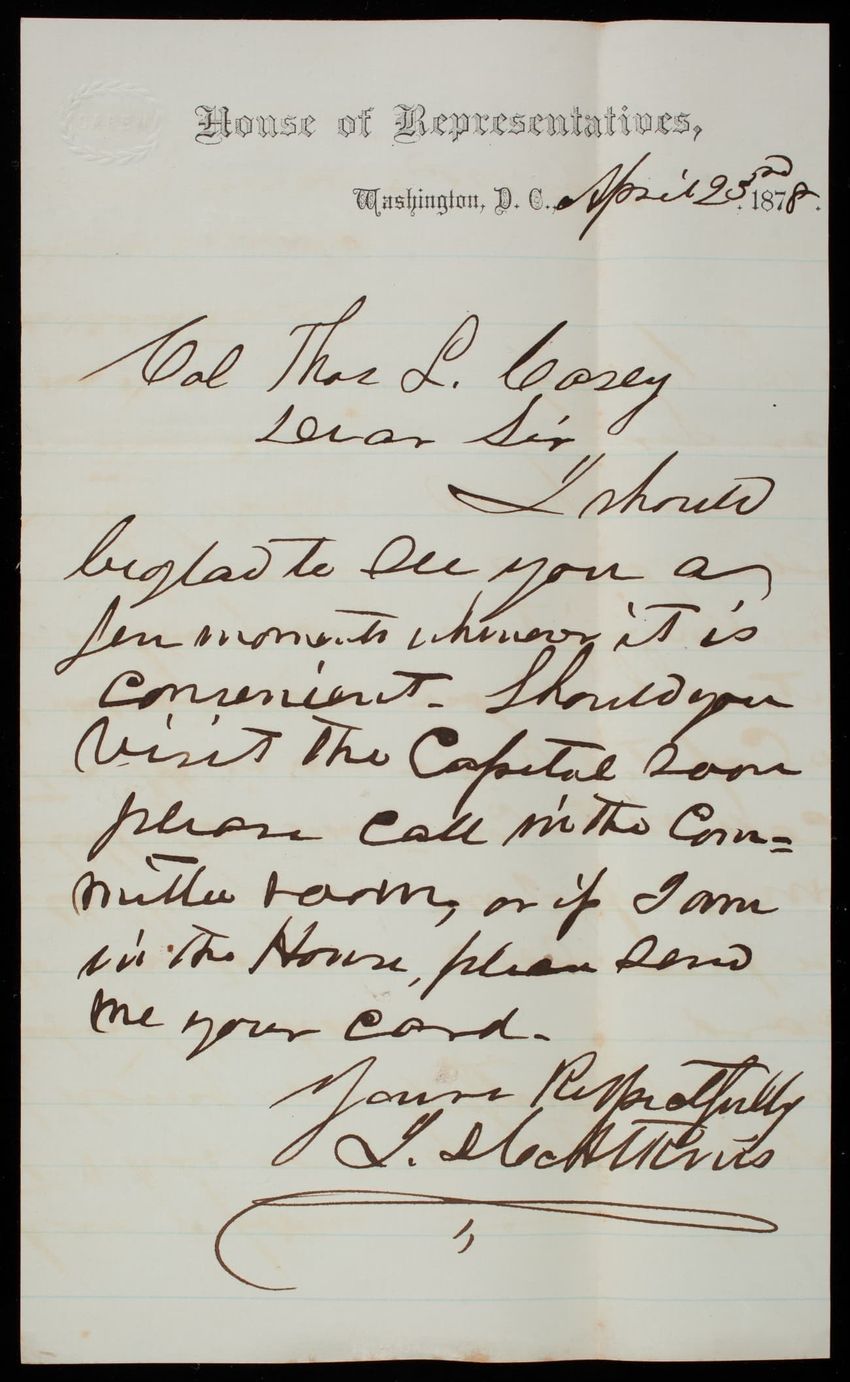 House of Representatives,
Washington, D. C., April 23rd 1878.
Col Thos L. Casey
Dear Sir
I should
be glad to see you a
few moments whenever it is
convenient. Should you
visit the Capitol soon
please call in the Com=
mittee room, or if I am
in the House, please send
me your card.
Yours Respectfully
J. D. C. Atkins